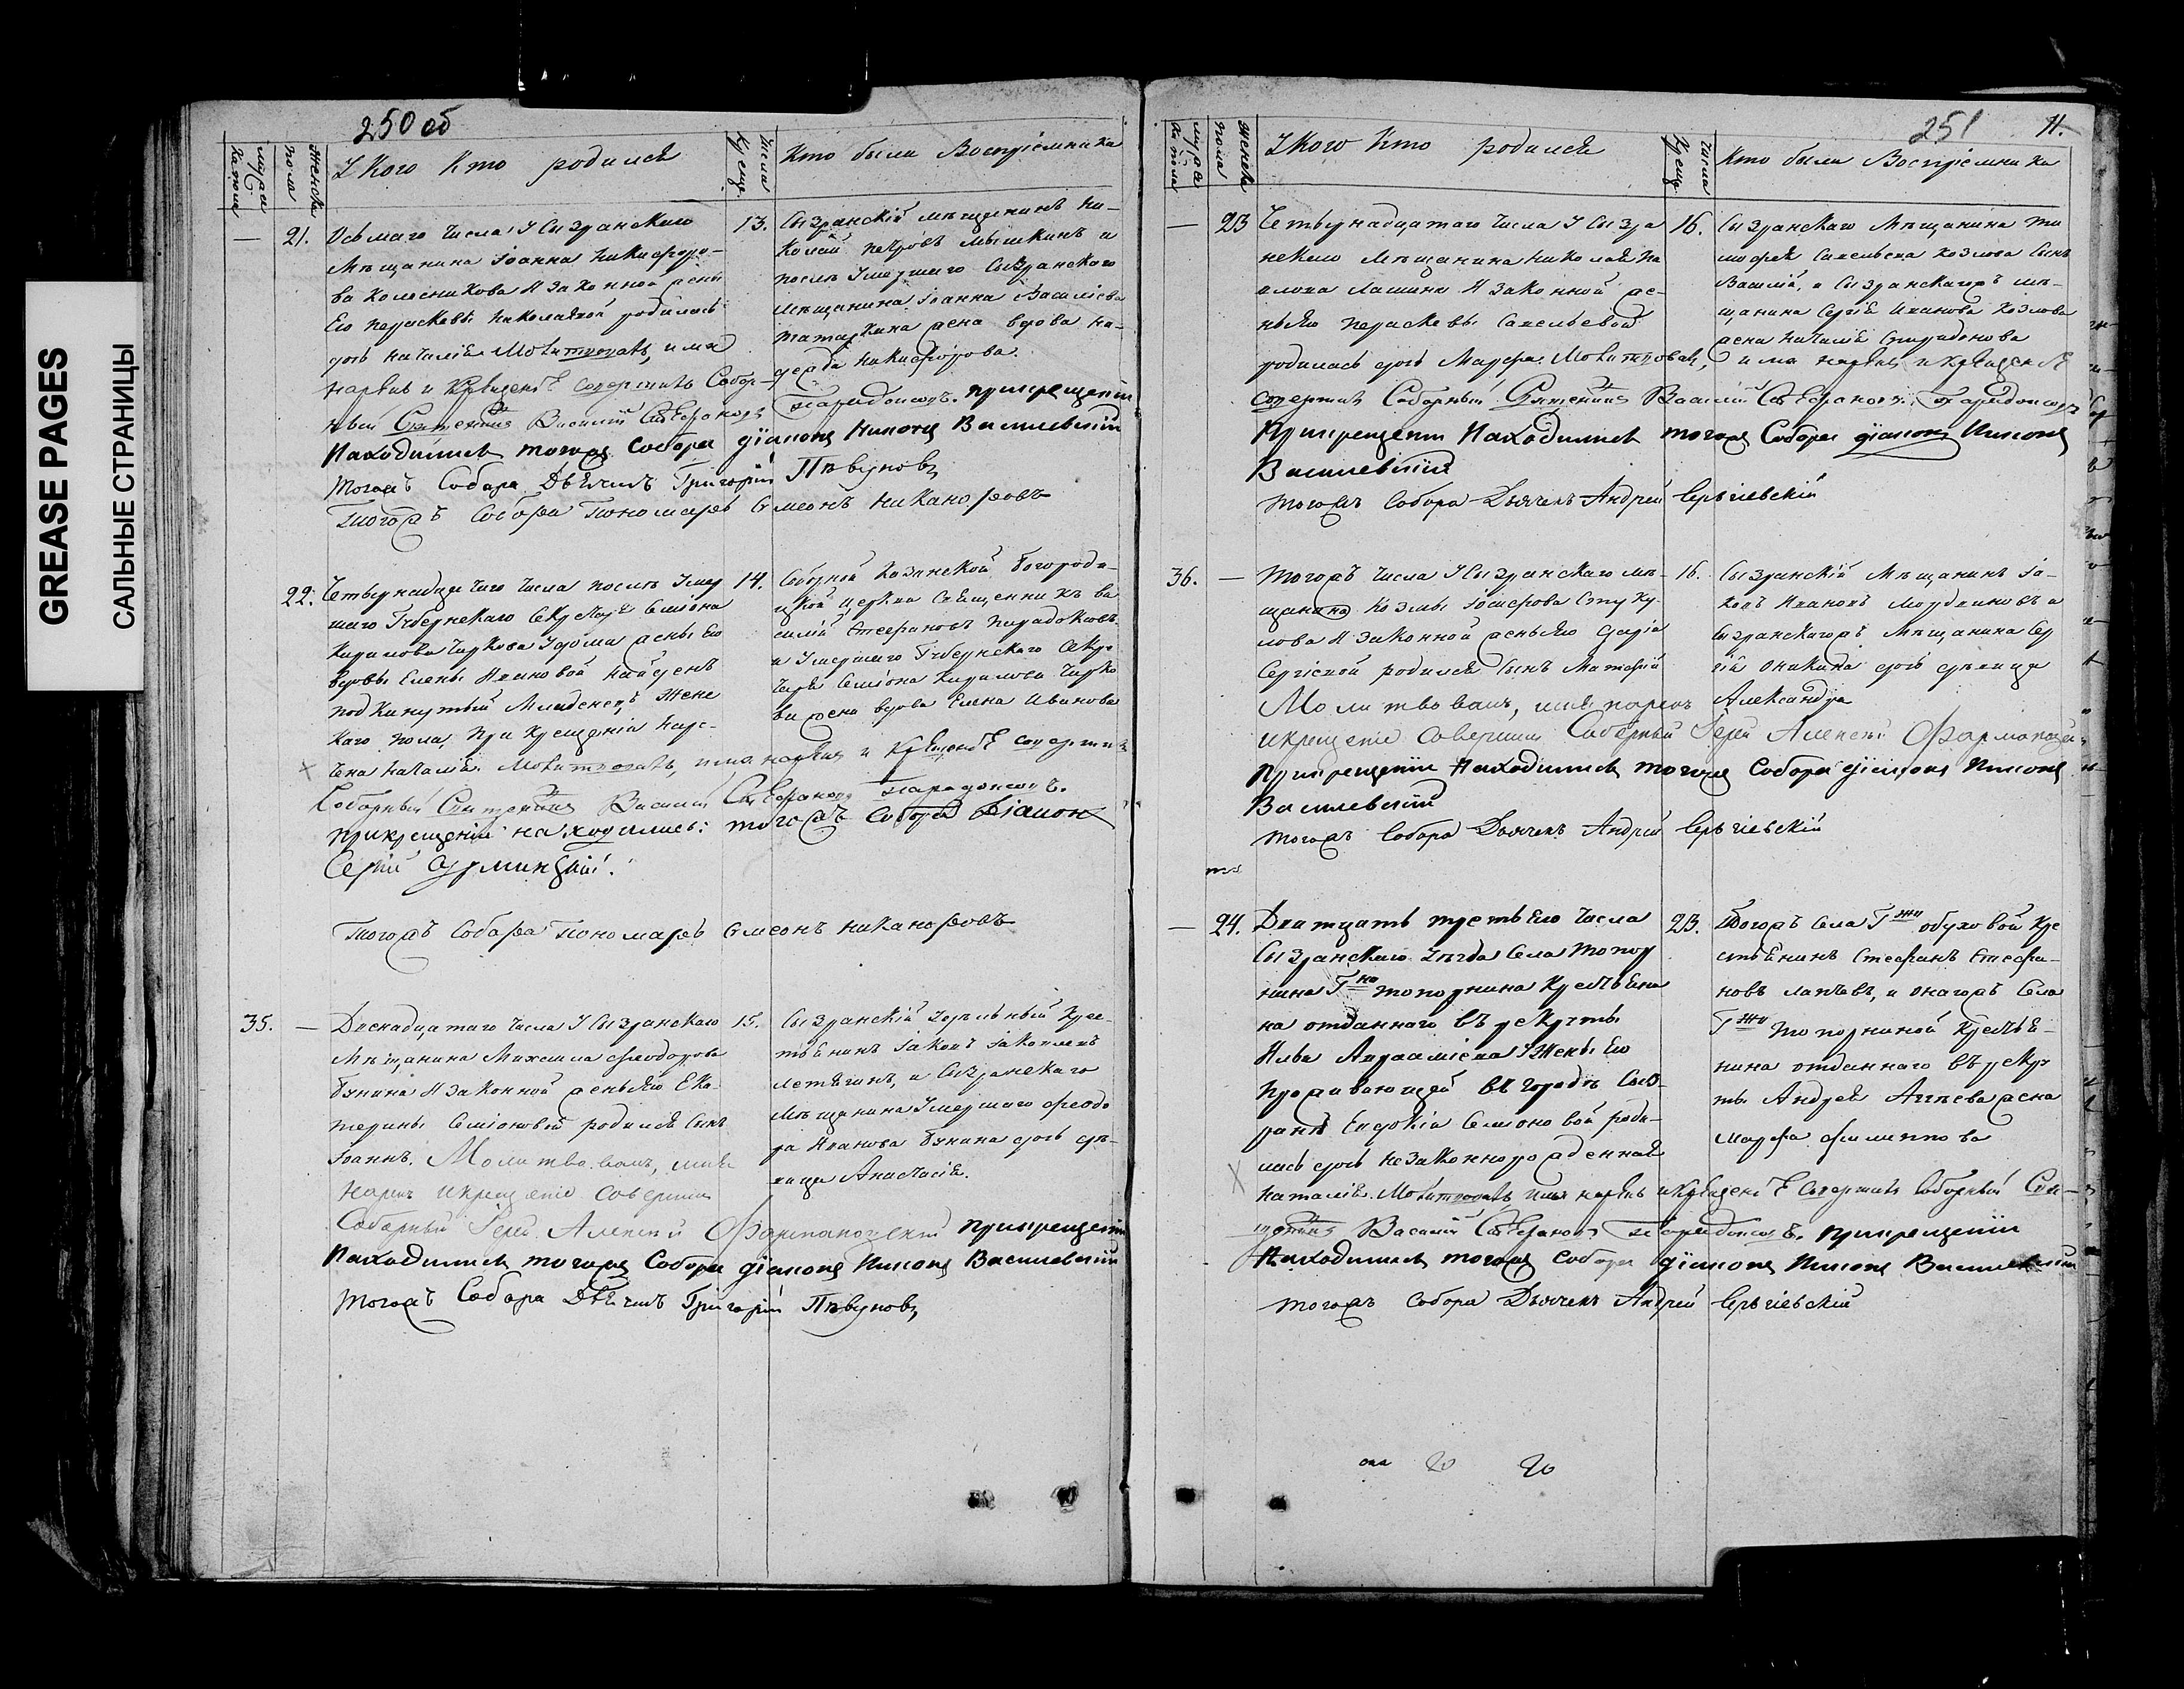 GREASE PAGES
САЛЬНЫЕ СТРАНИЦЫ
250 об
У Кого Кто родился
Кто были Воспріемника
21. Осьмаго числа У Сызранскаго
Мѣщанина Іоанна Никифоро-
ва Колесникова И Законной жены
Его Параскевы Николаевой родилась
дочь Наталія Молитвовалъ, имя
нарекъ и Крещеніе совершилъ Собор-
ный Священникъ Василій Стефановъ Парадоксовъ. При крещеніи
Находились тогожъ Собора Діаконъ Никонъ Василевскій
Тогожъ Собора Дьячекъ Григорій Пѣвуновъ
Тогожъ Собора Пономарь Симеонъ Никаноровъ
13. Сызранскій мѣщанинъ Ни-
колай Петровъ Мышкинъ и
послѣ Умершаго Сызранскаго
мѣщанина Іоанна Василіева
жена вдова На-
дежда Никифорова.
22. Четырнадцатаго числа послѣ Умер
шаго Губернскаго Секретаря Симіона
Кирилова Чиркова У дома жены Его
вдовы Елены Ивановой Найденъ
подкинутый Младенецъ Жене
каго пола, При Крещеніи Наре-
чена Наталія. Молитвовалъ, имя нарекъ и Крещеніе совершилъ
Соборный Священникъ Василій Стефановъ Парадоксовъ.
При крещеніи находились: тогожъ Собора Діаконъ
Сергій
Тогожъ Собора Пономарь Симеонъ Никаноровъ
14. Соборной Казанской Богороди-
цкой церкви Священникъ Ва
силій Стефановъ Парадоксовъ
и Умершаго Губернскаго Секре
таря Симіона Кирилова Чирко
ва жена вдова Елена Иванова
35. — Пятнадцатаго числа У Сызранскаго
Мѣщанина Михаила Феодорова
Бунина И Законной жены Его Ека-
терины Симіоновой родился Сынъ
Іоаннъ. Молитвовалъ, имя
нарекъ и крещеніе совершилъ
Соборный Іерей Алексій при крещеніи
Находились тогожъ Собора Діаконъ Никонъ Василевскій
Тогожъ Собора Дьячекъ Григорій Пѣвуновъ
15. Сызранскій Удѣльный Крес-
тьянинъ Іаковъ Іаковлевъ
и Сызранскаго
Мѣщанина Умершаго Феодо
ра Иванова Бунина дочь дѣ-
вица Анастасія.
251 11.
У Кого Кто родился
Кто были Воспріемника
— 23 Четырнадцатаго числа У Сызра
нскаго Мѣщанина Николая Па
влова Лашина И Законной же-
ны Его Параскевы Савельевой
родилась дочь Марфа. Молитвовалъ, имя нарекъ и Крещеніе
совершилъ Соборный Священникъ Василій Стефановъ Парадоксовъ
При крещеніи Находились тогожъ Собора Діаконъ Никонъ
Василевскій
Тогожъ Собора Дьячекъ Андрей Сергіевскій
16. Сызранскаго Мѣщанина Ти
мофея Савельева Козлова Сынъ
Василій, и Сызранскагожъ мѣ-
щанина Сергія Иванова Козлова
жена Наталія Спиридонова
36. — Тогожъ числа У Сызранскаго мѣ-
щанина Козмы Іосифова Стуку-
лова И Законной жены Его Дарьи
Сергіевой родился Сынъ Матфій
Молитвовалъ, имя нарекъ
и крещеніе совершилъ Соборный Іерей Алексій
При крещеніи Находились тогожъ Собора Діаконъ Никонъ
Василевскій
Тогожъ Собора Дьячекъ Андрей Сергіевскій
16. Сызранскій Мѣщанинъ Іа-
ковъ Ивановъ Мордвиновъ и
Сызранскагожъ Мѣщанина Сер
гія Оникина дочь дѣвица
Александра
— 24. Двадцать третьего числа
Сызранскаго Уѣзда Села Топор
нина Г-на Топорнина Крестьяни
на отданнаго въ рекруты
Ильи Авраамьева У Жены Его
Проживающей въ городѣ Сыз-
ранѣ Евдокіи Симіоновой роди-
лась дочь Незаконнорожденная
Наталія. Молитвовалъ имя нарекъ и Крещеніе Совершилъ Соборный Свя-
щенникъ Василій Стефановъ Парадоксовъ. При крещеніи
Находились тогожъ Собора Діаконъ Никонъ Василевскій
Тогожъ Собора Дьячекъ Андрей Сергіевскій
23. Тогожъ Села Г-жи Обуховой Кре
стьянинъ Стефанъ Стефа-
новъ Лаптевъ, и Онагожъ Села
Г-жи Топорниной Крестья-
нина отданнаго въ рекру
ты Андрея Агѣева жена
Марфа Филиппова
20 20